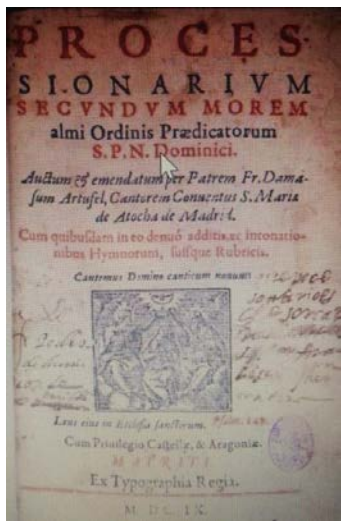 PROCES
SIONARIVM
SECVNDVM MOREM
almi Ordinis Prædicatorum
S.P.N. Dominici.
Auctum & emendatum per Patrem Fr. Dama-
sum Artufel, Cantorem Conuentus S. Maria
de Atocha de Madrid.
Cum quibusdam in eo denuò additis, ac intonatio-
nibus Hymnorum, suisque Rubricis.
Cantemus Domino canticum nouum
Laus eius in Ecclesia sanctorum.
Cum Priuilegio Castellæ, & Aragoniæ.
MATRITI
Ex Typographia Regia.
M. DC. IX.